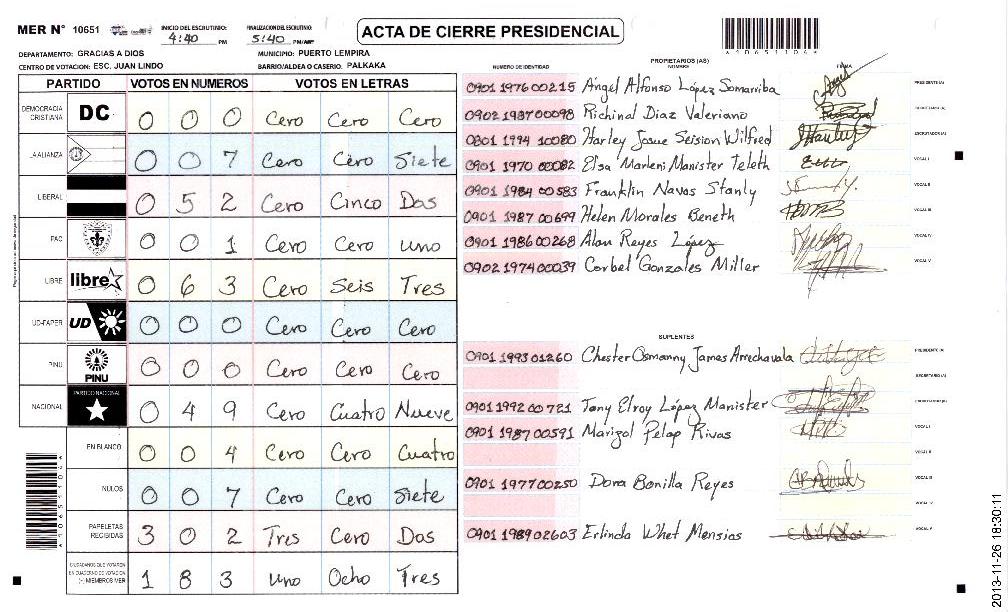 MER N° 10651 INICIO DEL ESCRUTINIO: 4:40 PM FINALIZACION DEL ESCRUTINIO: 5:40 PM/AM
ACTA DE CIERRE PRESIDENCIAL
DEPARTAMENTO: GRACIAS A DIOS MUNICIPIO: PUERTO LEMPIRA
CENTRO DE VOTACION: ESC. JUAN LINDO BARRIO/ALDEA O CASERIO: PALKAKA
PARTIDO VOTOS EN NUMEROS VOTOS EN LETRAS
DEMOCRACIA CRISTIANA DC 0 0 0 Cero Cero Cero
LA ALIANZA 0 0 7 Cero Cero Siete
LIBERAL 0 5 2 Cero Cinco Dos
PAC 0 0 1 Cero Cero uno
LIBRE libre 0 6 3 Cero Seis Tres
UD-FAPER UD 0 0 0 Cero Cero Cero
PINU PINU 0 0 0 Cero Cero Cero
NACIONAL PARTIDO NACIONAL 0 4 9 Cero Cuatro Nueve
EN BLANCO 0 0 4 Cero Cero Cuatro
NULOS 0 0 7 Cero Cero Siete
PAPELETAS RECIBIDAS 3 0 2 Tres Cero Dos
CIUDADANOS QUE VOTARON EN CUADERNO DE VOTACION (+) MIEMBROS MER 1 8 3 uno Ocho Tres
PROPIETARIOS (AS)
NUMERO DE IDENTIDAD NOMBRE FIRMA
0901 1976 00215 Ángel Alfonso López Somarriba PRESIDENTE (A)
0902 1987 00098 Richinal Diaz Valeriano SECRETARIO (A)
0801 1994 10080 Harley Josue Seision Wilfred ESCRUTADOR (A)
0901 1970 00082 Elsa Marleni Manister Teleth VOCAL I
0901 1984 00583 Franklin Navas Stanly VOCAL II
0901 1987 00699 Helen Morales Beneth VOCAL III
0901 1986 00268 Alan Reyes López VOCAL IV
0902 1974 00039 Corbel Gonzales Miller VOCAL V
SUPLENTES
0901 1993 01260 Chester Osmanny Jamas Arrechavala PRESIDENTE (A)
SECRETARIO (A)
0901 1992 00721 Tony Elroy López Manister ESCRUTADOR (A)
0901 1987 00591 Marizol Pelap Rivas VOCAL I
VOCAL II
0901 1977 00250 Dora Bonilla Reyes VOCAL III
VOCAL IV
0901 1989 02603 Erlinda Whet Mensias VOCAL V
2013-11-26 18:30:11